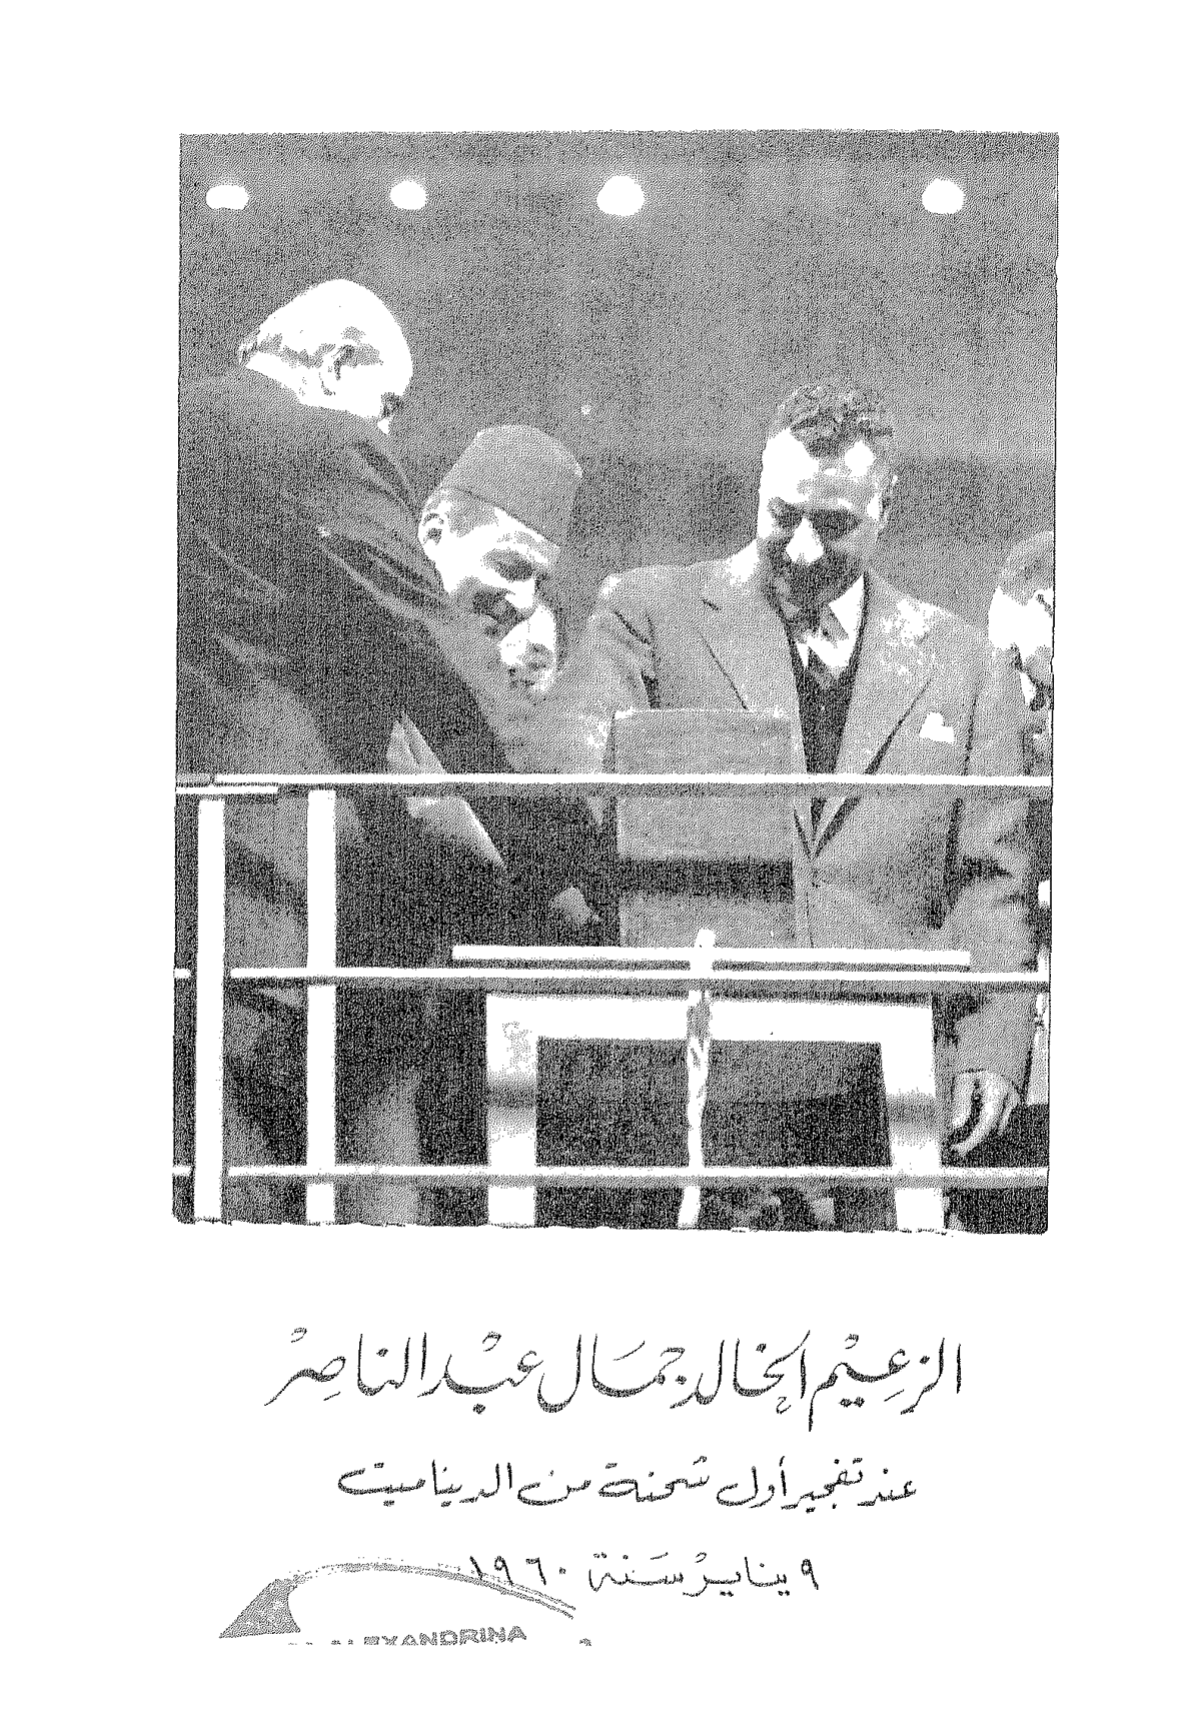 الزعيم الخالد جمال عبد الناصر
عند تفجير أول شحنة من الديناميت
٩ يناير سنة ١٩٦٠
ALEXANDRINA